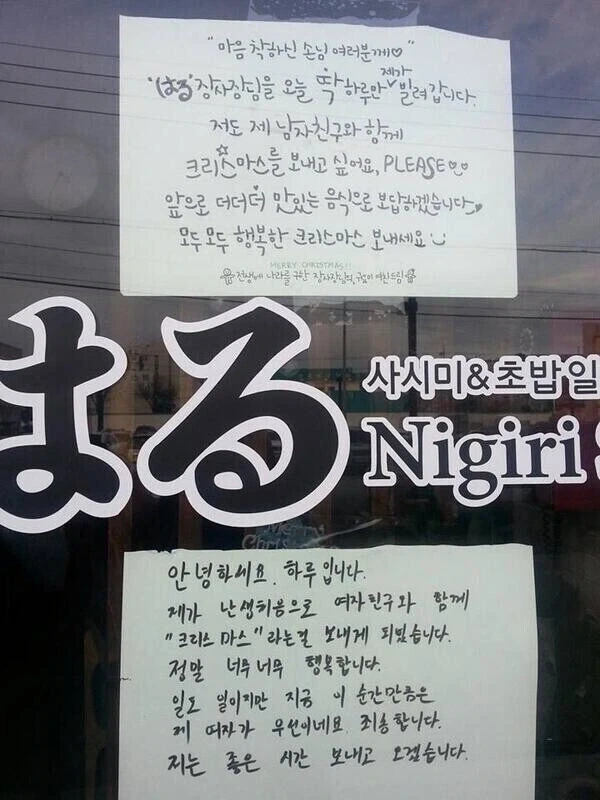 "마음 착하신 손님 여러분께♡"
'はる' 장사장님을 오늘 딱 하루만 제가 빌려갑니다.
저도 제 남자친구와 함께
크리스마스를 보내고 싶어요, PLEASE
앞으로 더더더 맛있는 음식으로 보답하겠습니다
모두모두 행복한 크리스마스 보내세요
MERRY CHRISTMAS!!
전생에 나라를 구한 장사장님의 여친드림
はる
사시미&초밥일
Nigiri
Merry
Chris
안녕하세요. 하루입니다.
제가 난생처음으로 여자친구와 함께
"크리스마스"라는걸 보내게 되었습니다.
정말 너무너무 행복합니다.
일도 일이지만 지금 이 순간만큼은
제 여자가 우선이네요 죄송합니다.
저는 좋은 시간 보내고 오겠습니다.